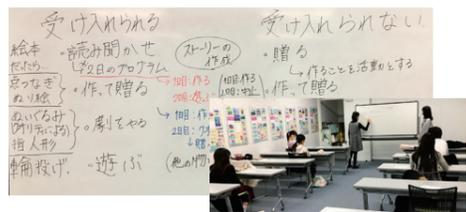 受け入れられる
受け入れられない.
絵本
だったら…
・読み聞かせ
→2日のプログラム
ストーリーの
作成
・贈る
→作ることを活動とする
点つなぎ
ぬり絵
・作って贈る
1回目:作る
2回目:
1回目:作る
ぬいぐるみ
指人形
・劇をやる
1回目:作
2回目:
→贈
輪投げ.
・遊ぶ
(他の